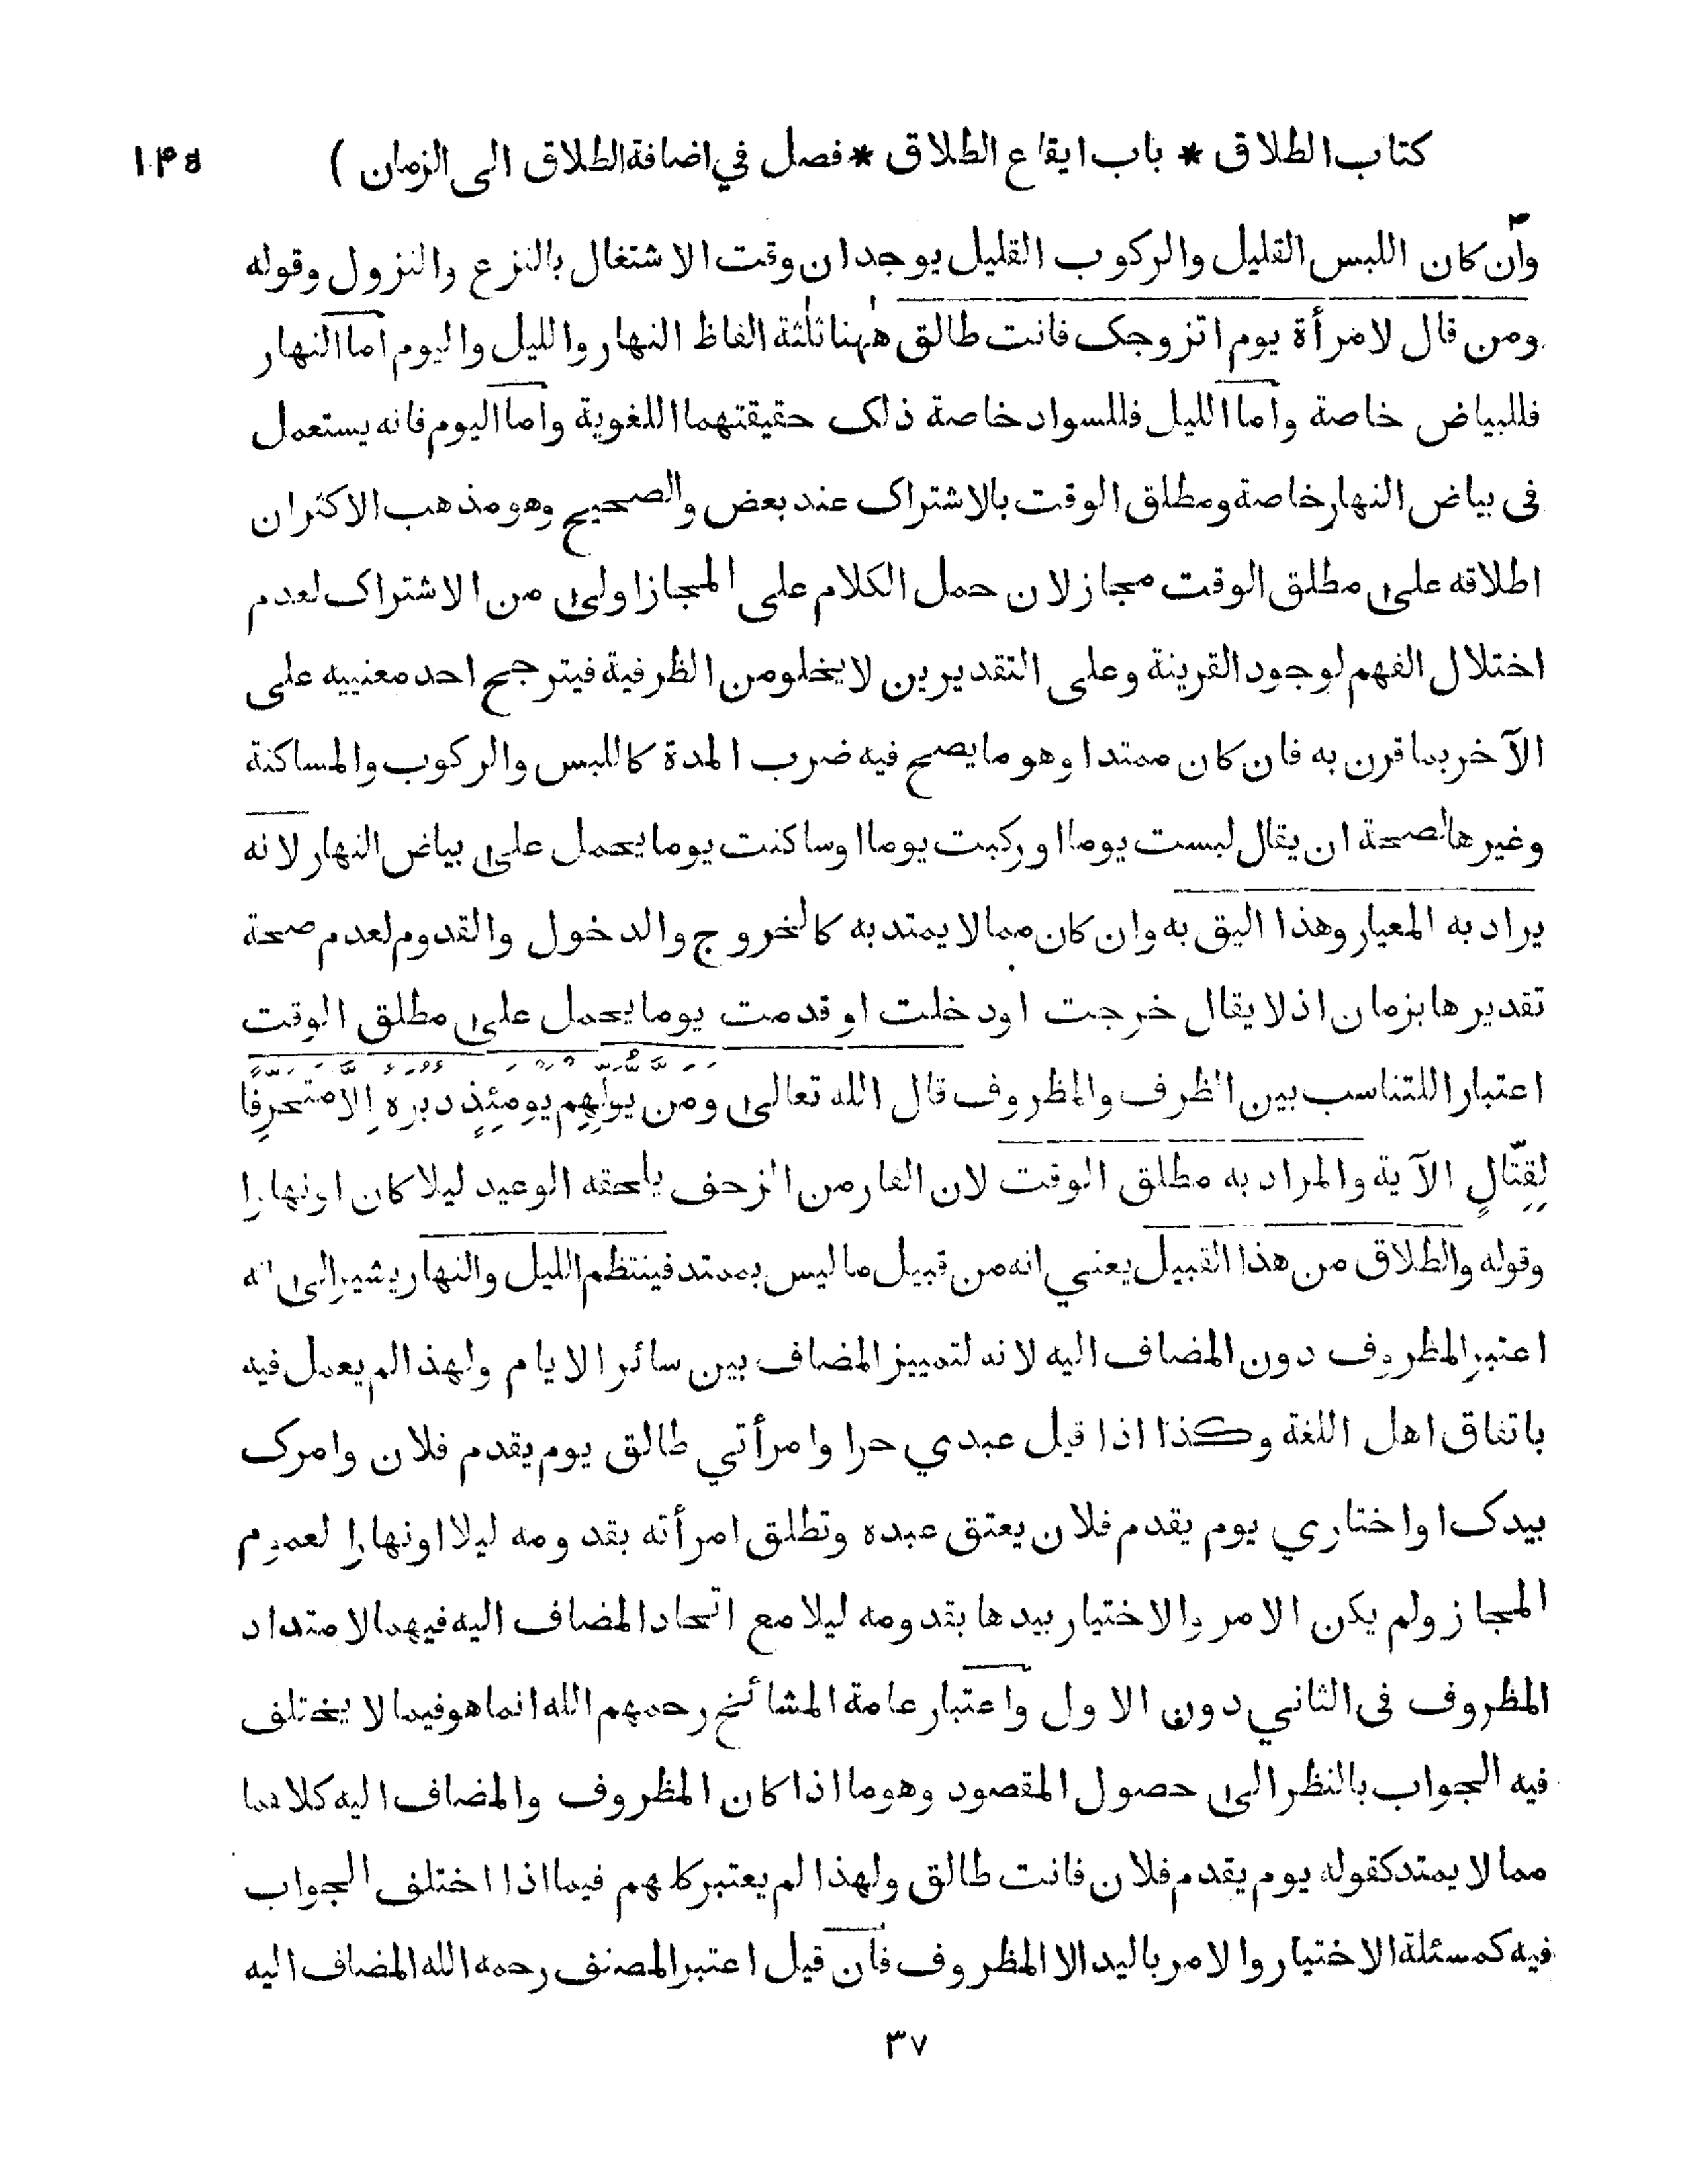 كتاب الطلاق * باب ايقاع الطلاق * فصل في اضافة الطلاق الى الزمان )
وان كان اللبس القليل والركوب القليل يوجدان وقت الاشتغال بالنزع والنزول وقوله
ومن قال لامرأة يوم اتزوجك فانت طالق ههنا ثلثة الفاظ النهار والليل واليوم اما النهار
فللبياض خاصة واما الليل فللسواد خاصة ذلك حقيقتهما اللغوية واما اليوم فانه يستعمل
فى بياض النهار خاصة ومطلق الوقت بالاشتراك عند بعض والصحيح وهو مذهب الاكثر ان
اطلاقه على مطلق الوقت مجاز لان حمل الكلام على المجاز اولى من الاشتراك لعدم
اختلال الفهم لوجود القرينة وعلى التقديرين لا يخلو من الظرفية فيترجح احد معنييه على
الآخر بما قرن به فان كان ممتدا وهو ما يصح فيه ضرب المدة كاللبس والركوب والمساكنة
وغيرها لصحة ان يقال لبست يوما او ركبت يوما او ساكنت يوما يحمل على بياض النهار لانه
يراد به المعيار وهذا اليق به وان كان مما لا يمتد به كالخروج والدخول والقدوم لعدم صحة
تقديرها بزمان اذ لا يقال خرجت او دخلت او قدمت يوما يحمل على مطلق الوقت
اعتبارا للتناسب بين الظرف والمظروف قال الله تعالى وَمَن يُوَلِّهِم يَومَئِذٍ دُبُرَهُ إِلاَّ مُتَحَرِّفًا
لِقِتَالٍ الآية والمراد به مطلق الوقت لان الفار من الزحف يلحقه الوعيد ليلا كان او نهارا
وقوله والطلاق من هذا القبيل يعني انه من قبيل ما ليس بممتد فينتظم الليل والنهار يشير الى انه
اعتبر المظروف دون المضاف اليه لانه لتمييز المضاف بين سائر الايام ولهذا لم يعمل فيه
باتفاق اهل اللغة وكذا اذا قيل عبدي حرا وامرأتي طالق يوم يقدم فلان وامرك
بيدك او اختاري يوم يقدم فلان يعتق عبده وتطلق امرأته بقدومه ليلا او نهارا لعموم
المجاز ولم يكن الامر والاختيار بيدها بقدومه ليلا مع اتحاد المضاف اليه فيهما لامتداد
المظروف فى الثاني دون الاول واعتبار عامة المشائخ رحمهم الله انما هو فيما لا يختلف
فيه الجواب بالنظر الى حصول المقصود وهو ما اذا كان المظروف والمضاف اليه كلاهما
مما لا يمتد كقوله يوم يقدم فلان فانت طالق ولهذا لم يعتبر كلهم فيما اذا اختلف الجواب
فيه كمسئلة الاختيار والامر باليد الا المظروف فان قيل اعتبر المصنف رحمه الله المضاف اليه
٣٧